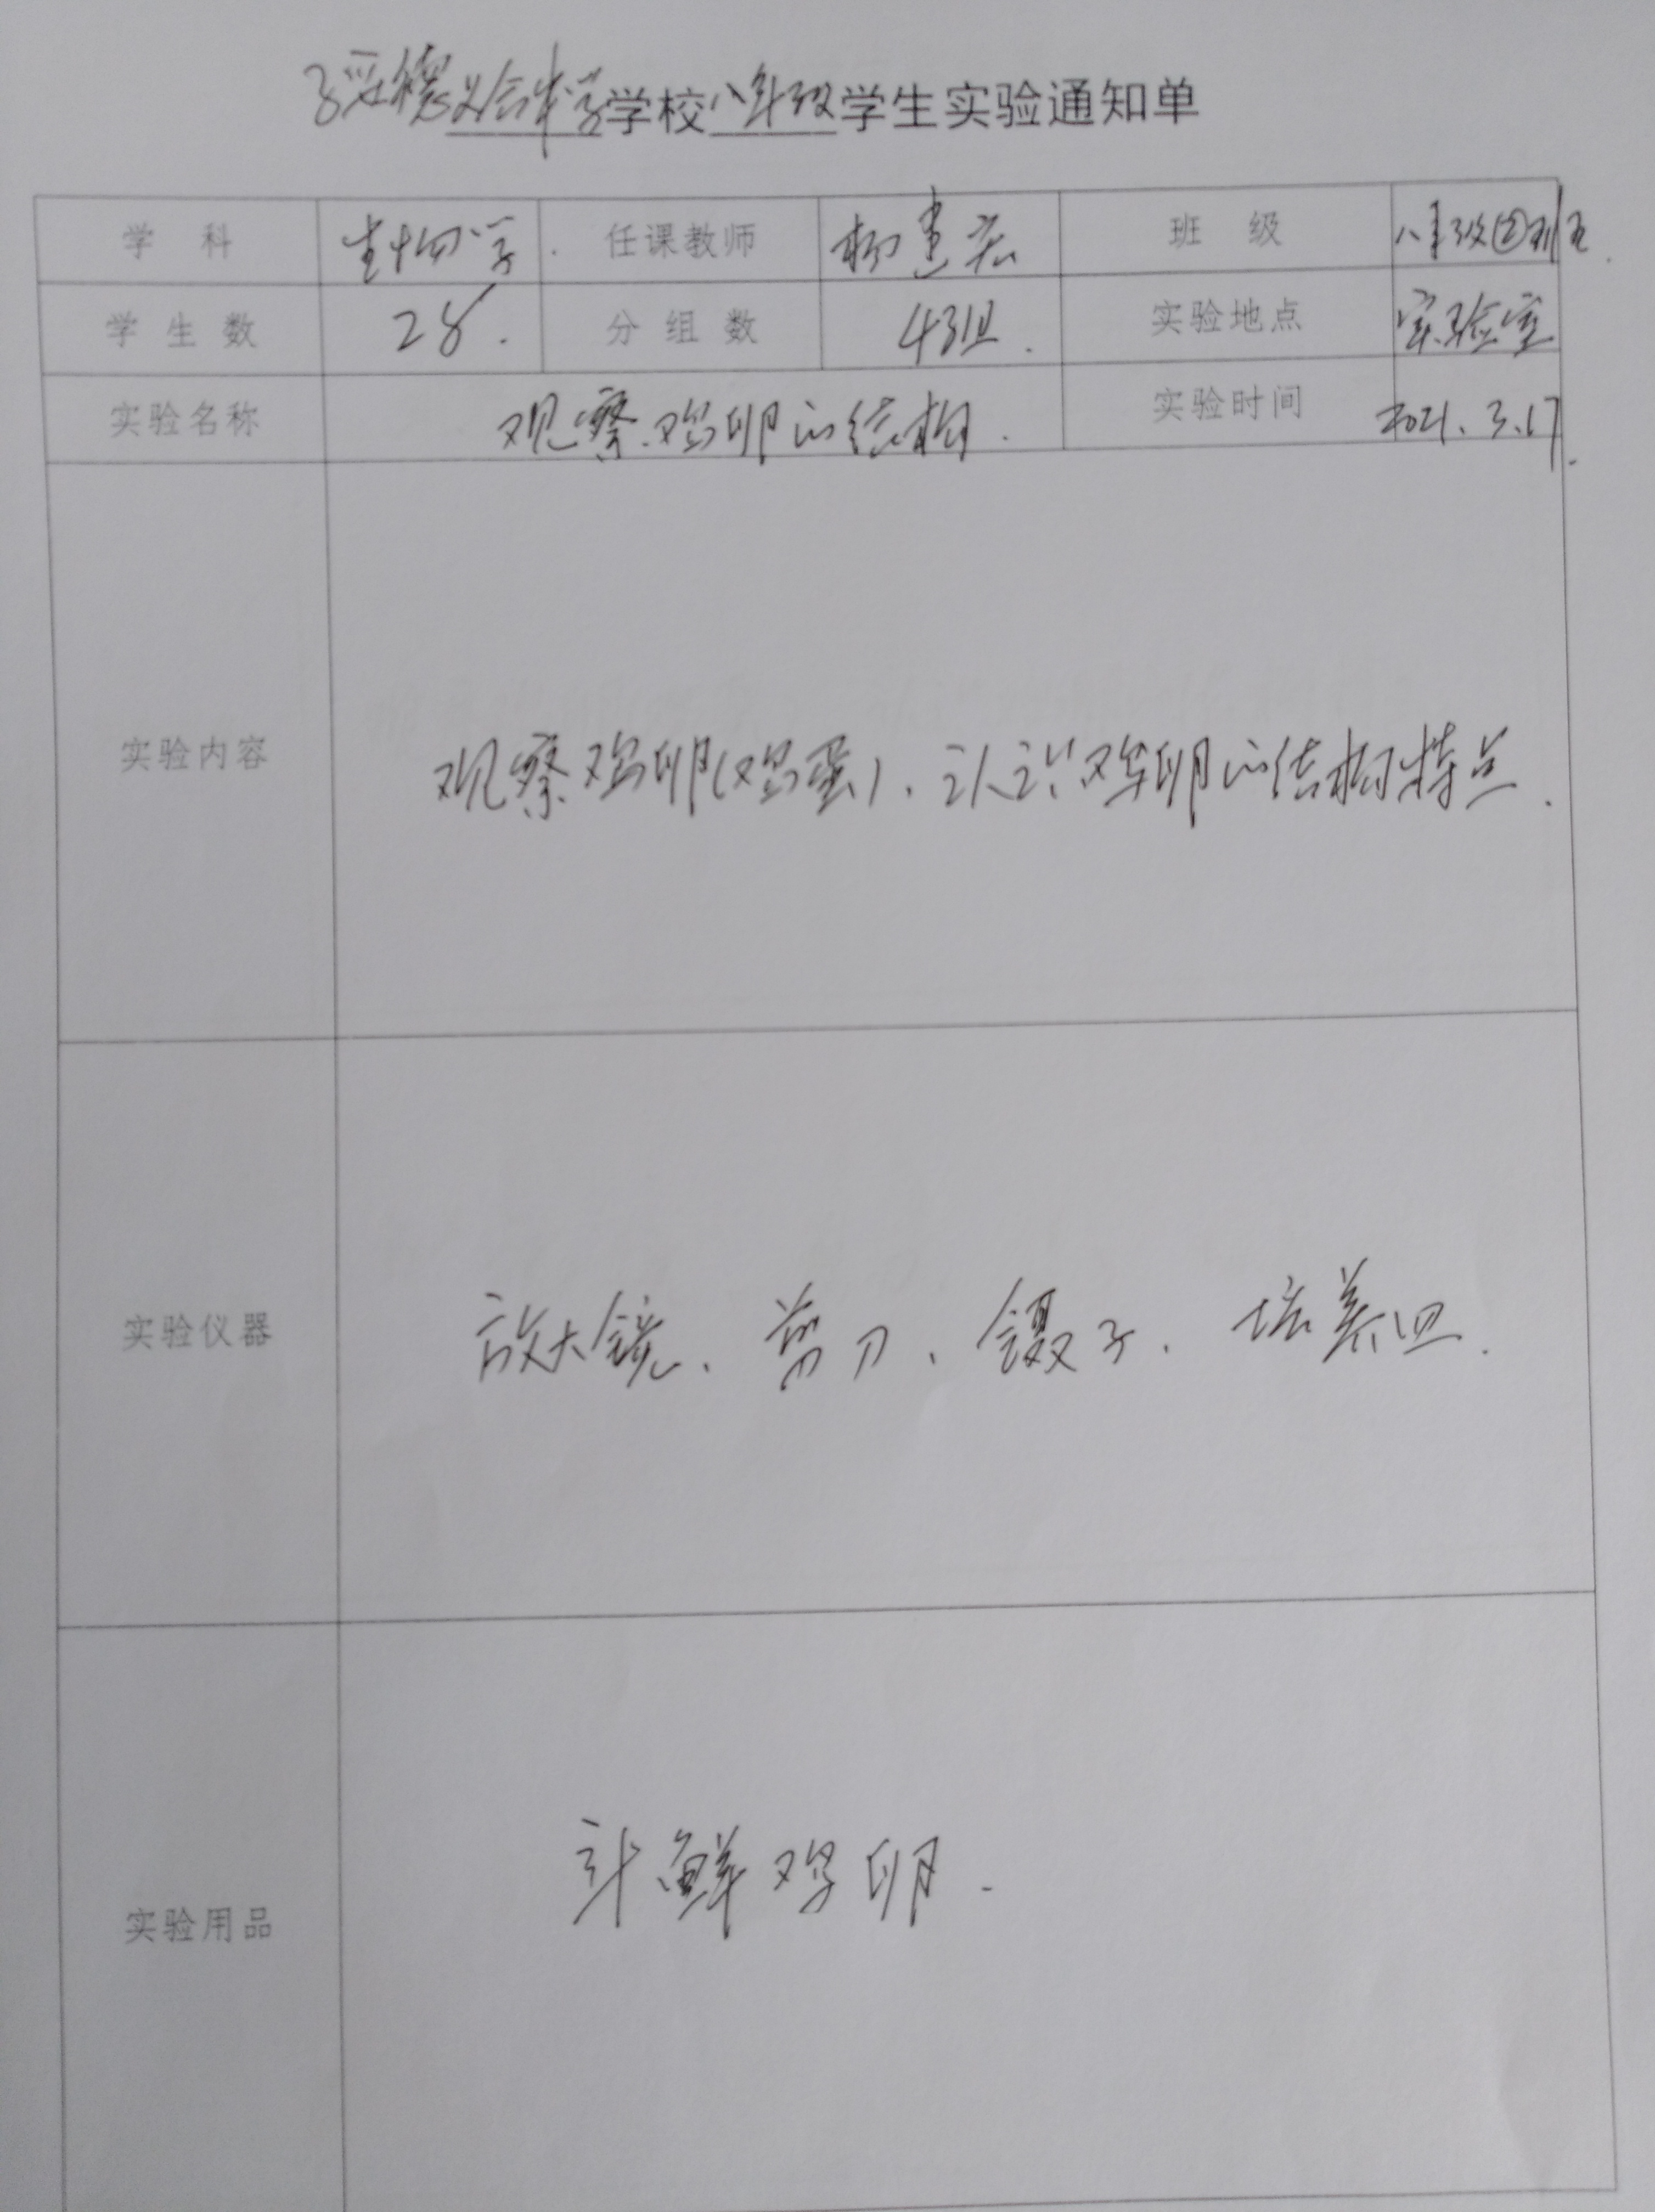 绥德义合中学学校八年级学生实验通知单
学 科 生物学. 任课教师 柳建宏 班 级 八年级②班
学 生 数 28. 分 组 数 4组. 实验地点 实验室
实验名称 观察鸡卵的结构. 实验时间 2021.3.17.
实验内容 观察鸡卵(鸡蛋)、认识鸡卵的结构特点.
实验仪器 放大镜、剪刀、镊子、培养皿.
实验用品 新鲜鸡卵.